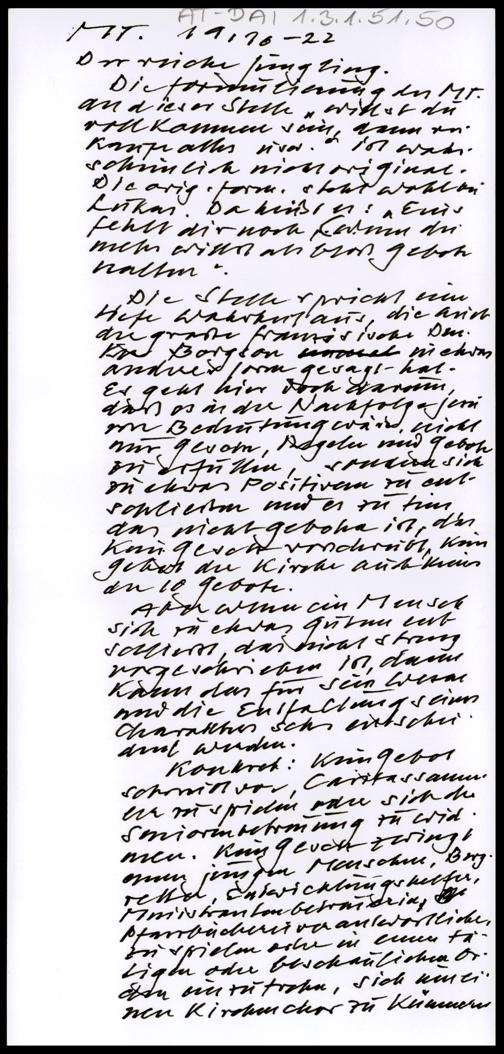 AT-DAI 1.3.1.51.50
MT. 19,16-22
Der reiche Jüngling.
Die Formulierung des MT.
an dieser Stelle „willst du
vollkommen sein, dann ver-
kaufe alles usw." ist wahr-
scheinlich nicht original.
Die orig. Form. steht wohl bei
Lukas. Da heißt es: „Eins
fehlt dir noch, wenn du
mehr willst als bloß Gebote
halten".
Die Stelle spricht eine
tiefe Wahrheit aus, die auch
der große französische Den-
ker Bergson in etwas
anderer Form gesagt hat.
Es geht hier doch darum,
daß es in der Nachfolge Jesu
von Bedeutung wäre, nicht
nur Gesetze, Regeln und Gebote
zu erfüllen, sondern sich
zu etwas Positivem zu ent-
schließen und es zu tun,
das nicht geboten ist, das
kein Gesetz vorschreibt, kein
Gebot der Kirche auch keins
der 10 Gebote.
Aber wenn ein Mensch
sich zu etwas Gutem ent-
schließt, das nicht streng
vorgeschrieben ist, dann
kann das für sein Wesen
und die Entfaltung seines
Charakters sehr entschei-
dend werden.
Konkret: Kein Gebot
schreibt vor, Caritassamm-
ler zu spielen oder sich der
Seniorenbetreuung zu wid-
men. Kein Gesetz zwingt
einen jungen Menschen, Berg-
retter, Entwicklungshelfer,
Ministrantenbetreuerin,
Pfarrbüchereiverantwortlichen
zu spielen oder in einen tä-
tigen oder beschaulichen Or-
den einzutreten, sich um ei-
nen Kirchenchor zu kümmern